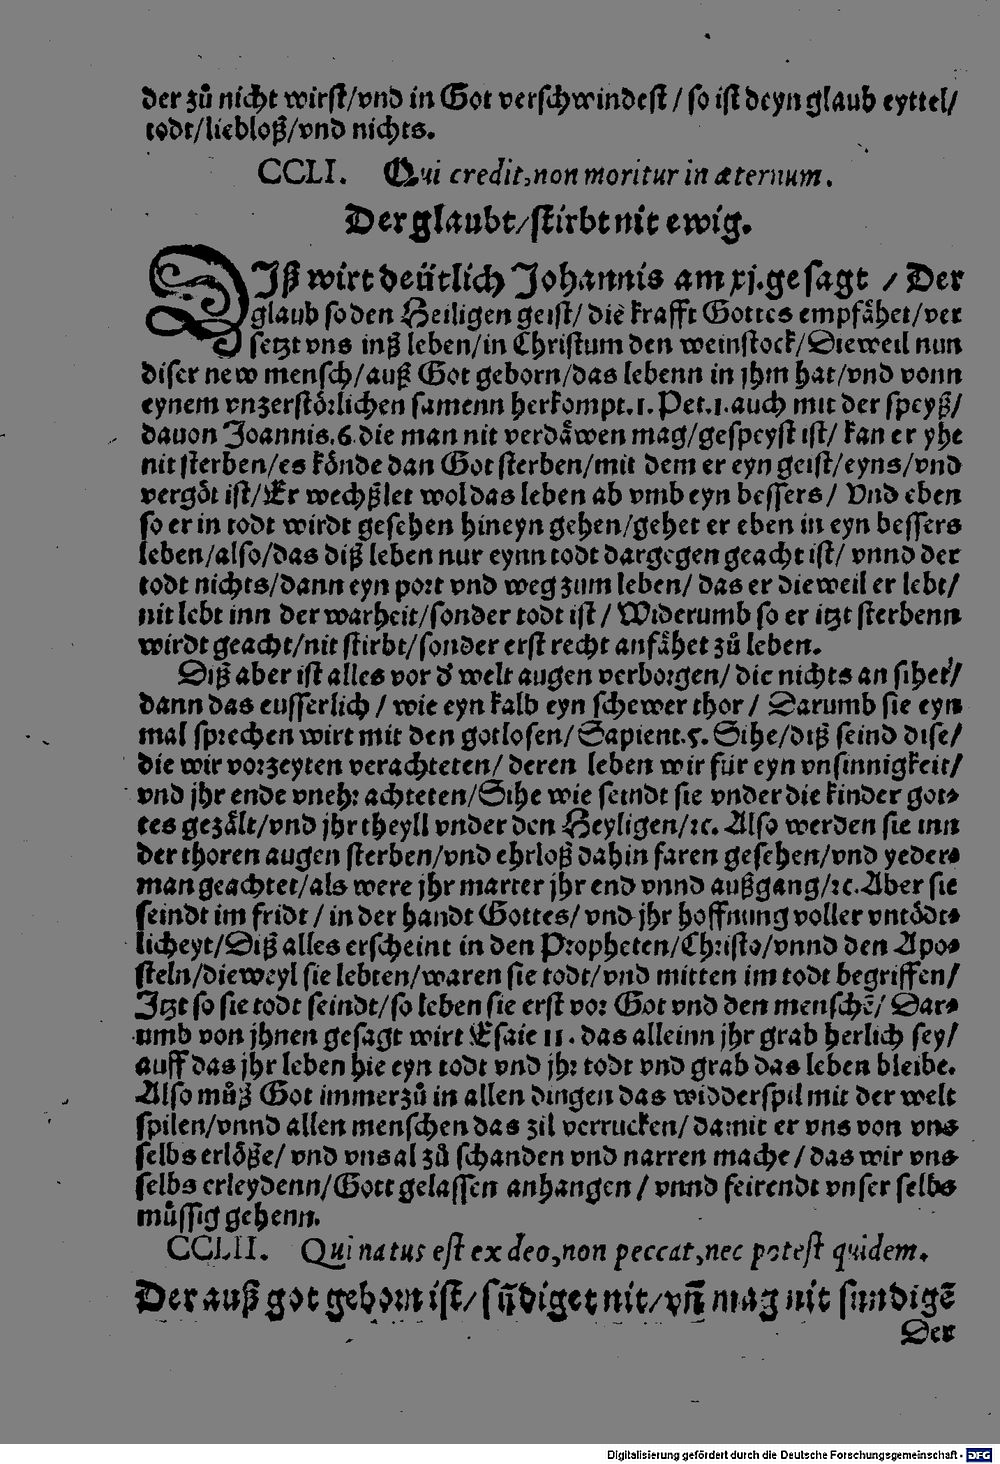 der zů nicht wirst/vnd in Got verschwindest / so ist deyn glaub eyttel/
todt/liebloß/vnd nichts.
CCLI. Qui credit, non moritur in æternum.
Der glaubt/stirbt nit ewig.
DIß wirt deütlich Johannis am xj. gesagt / Der
glaub so den Heiligen geist/ die krafft Gottes empfähet/ver
setzt vns inß leben/in Christum den weinstock/Dieweil nun
diser new mensch/auß Got geborn/das lebenn in jhm hat/vnd vonn
eynem vnzerstörlichen samenn herkompt.1.Pet.1.auch mit der speyß/
dauon Joannis.6.die man nit verdäwen mag/gespeyst ist/ kan er yhe
nit sterben/es könde dan Got sterben/mit dem er eyn geist/eyns/vnd
vergöt ist/Er wechßlet wol das leben ab vmb eyn bessers/ Vnd eben
so er in todt wirdt gesehen hineyn gehen/gehet er eben in eyn bessers
leben/also/das diß leben nur eynn todt dargegen geacht ist/ vnnd der
todt nichts/dann eyn port vnd weg zum leben/ das er dieweil er lebt/
nit lebt inn der warheit/sonder todt ist / Widerumb so er itzt sterbenn
wirdt geacht/nit stirbt/sonder erst recht anfähet zů leben.
Diß aber ist alles vor d' welt augen verborgen/ die nichts an sihet/
dann das eusserlich / wie eyn kalb eyn schewer thor / Darumb sie eyn
mal sprechen wirt mit den gotlosen/Sapient.5. Sihe/diß seind dise/
die wir vorzeyten verachteten/ deren leben wir für eyn vnsinnigkeit/
vnd jhr ende vnehr achteten/Sihe wie seindt sie vnder die kinder got-
tes gezält/vnd jhr theyll vnder den Heyligen/ꝛc. Also werden sie inn
der thoren augen sterben/vnd ehrloß dahin faren gesehen/vnd yeder-
man geachtet/als were jhr marter jhr end vnnd außgang/ꝛc.Aber sie
seindt im fridt / in der handt Gottes/ vnd jhr hoffnung voller vntödt-
licheyt/Diß alles erscheint in den Propheten/Christo/vnnd den Apo-
steln/dieweyl sie lebten/waren sie todt/vnd mitten im todt begriffen/
Jtzt so sie todt seindt/so leben sie erst vor Got vnd den menschẽ/ Dar-
umb von jhnen gesagt wirt Esaie 11. das alleinn jhr grab herlich sey/
auff das jhr leben hie eyn todt vnd jhr todt vnd grab das leben bleibe.
Also můß Got immerzů in allen dingen das widderspil mit der welt
spilen/vnnd allen menschen das zil verrucken/ damit er vns von vns
selbs erlöße/ vnd vnsal zů schanden vnd narren mache / das wir vns
selbs erleydenn/Gott gelassen anhangen / vnnd feirendt vnser selbs
müssig gehenn.
CCLII. Qui natus est ex deo, non peccat, nec potest quidem.
Der auß got geborn ist/ sündiget nit/vñ mag nit sundigẽ
Der
Digitalisierung gefördert durch die Deutsche Forschungsgemeinschaft - DFG